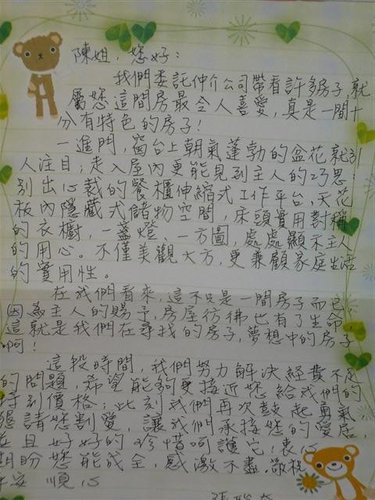 陳姐，您好：
我們委託仲介公司帶看許多房子,就
屬您這間房最令人喜愛,真是一間十
分有特色的房子!
一進門,窗台上朝氣蓬勃的盆花就引
人注目;走入屋內更能見到主人的巧思:
別出心裁的餐櫃伸縮式工作平台,天花
板內隱藏式儲物空間,床頭實用對稱
的衣櫥,一盞燈,一方圖,處處顯示主人
的用心。不僅美觀大方,更兼顧家庭生活
的實用性。
在我們看來,這不只是一間房子而已,
因為主人的賜予,房屋彷彿也有了生命
這就是我們在尋找的房子,夢想中的房子
啊!
這段時間,我們努力解決經費不足
的問題,希望能夠更接近您給我們的
特別價格,此刻我們再次鼓起勇氣
懇請您割愛,讓我們承接您的愛居,
並且好好的珍惜呵護它,衷心
期盼您能成全,感激不盡.敬祝
平安 順心